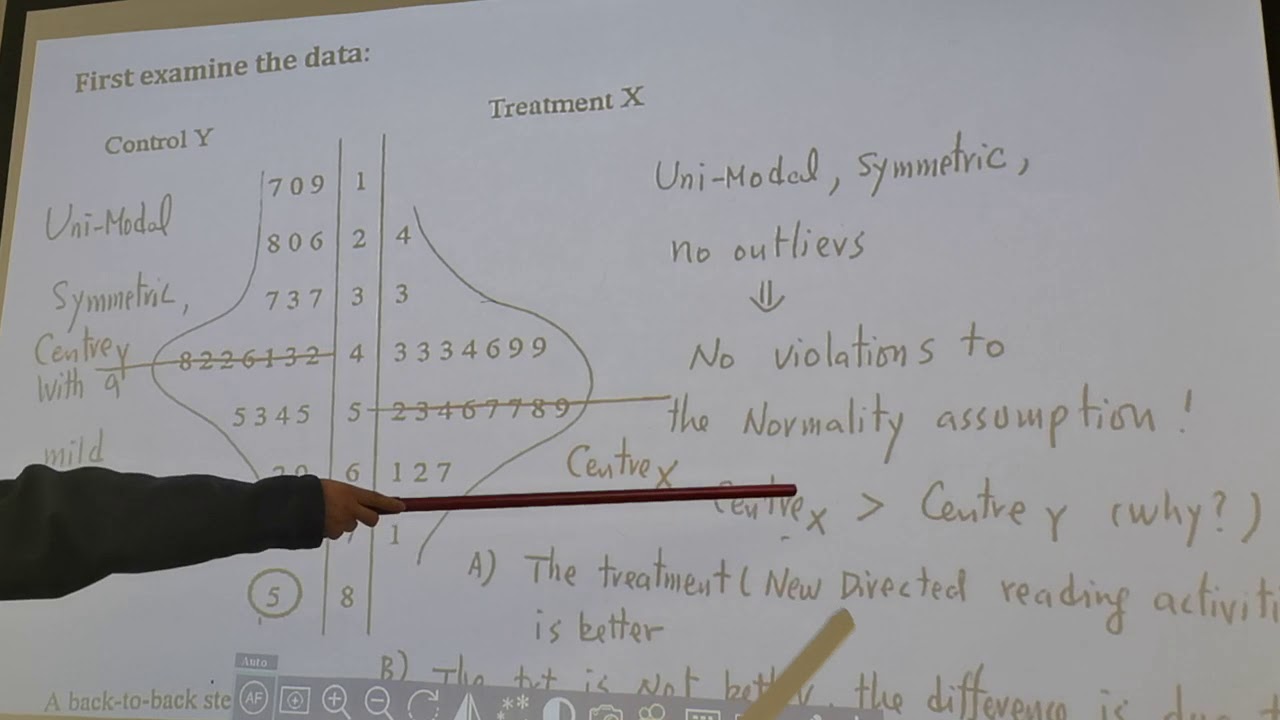 First examine the data:
Control Y
Treatment X
7 0 9 1
8 0 6 2 4
7 3 7 3 3
8 2 2 6 1 3 2 4 3 3 3 4 6 9 9
5 3 4 5 5 2 3 4 6 7 7 8 9
6 1 2 7
1
5 8
Uni-Modal
Symmetric,
Centre Y
With a
mild
Uni-Modal, Symmetric,
no outliers
⇓
No violations to
the Normality assumption!
Centre X
Centre X > Centre Y (why?)
A) The treatment (New Directed reading activiti
is better
B) The trt is Not better, the difference is
A back-to-back ste
Auto
AF